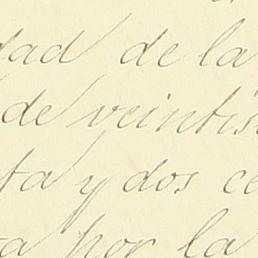 dad de la
de veintis
ta y dos ce
ta por la